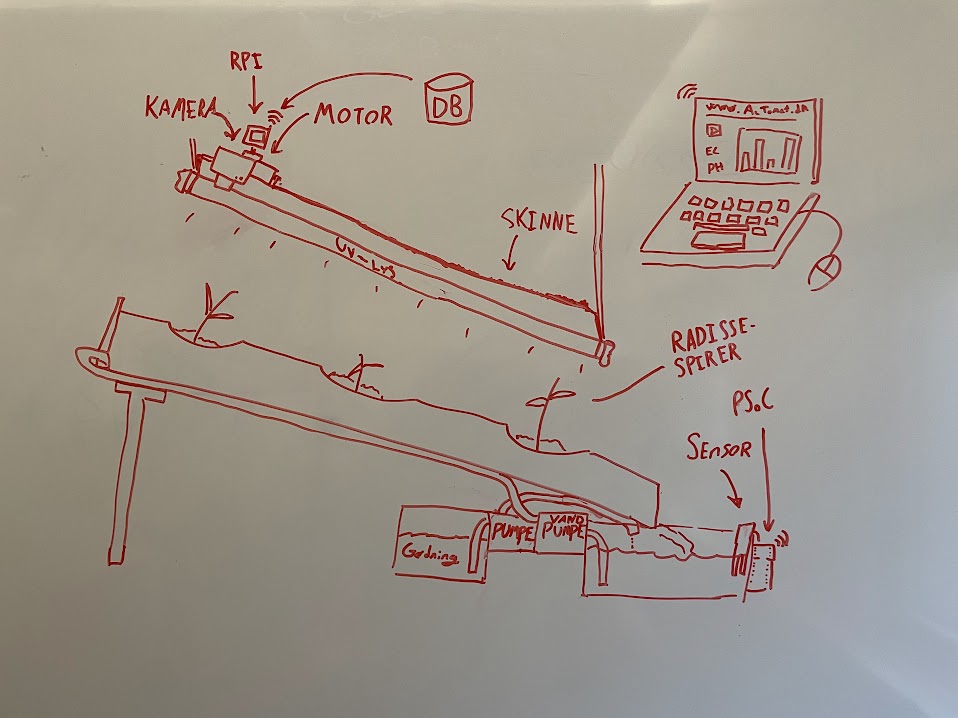 RPI
KAMERA
MOTOR
DB
www.AcTomat.dk
EC
PH
SKINNE
UV-Lys
RADISSE-
SPIRER
PSoC
Sensor
PUMPE
VAND
PUMPE
Gødning